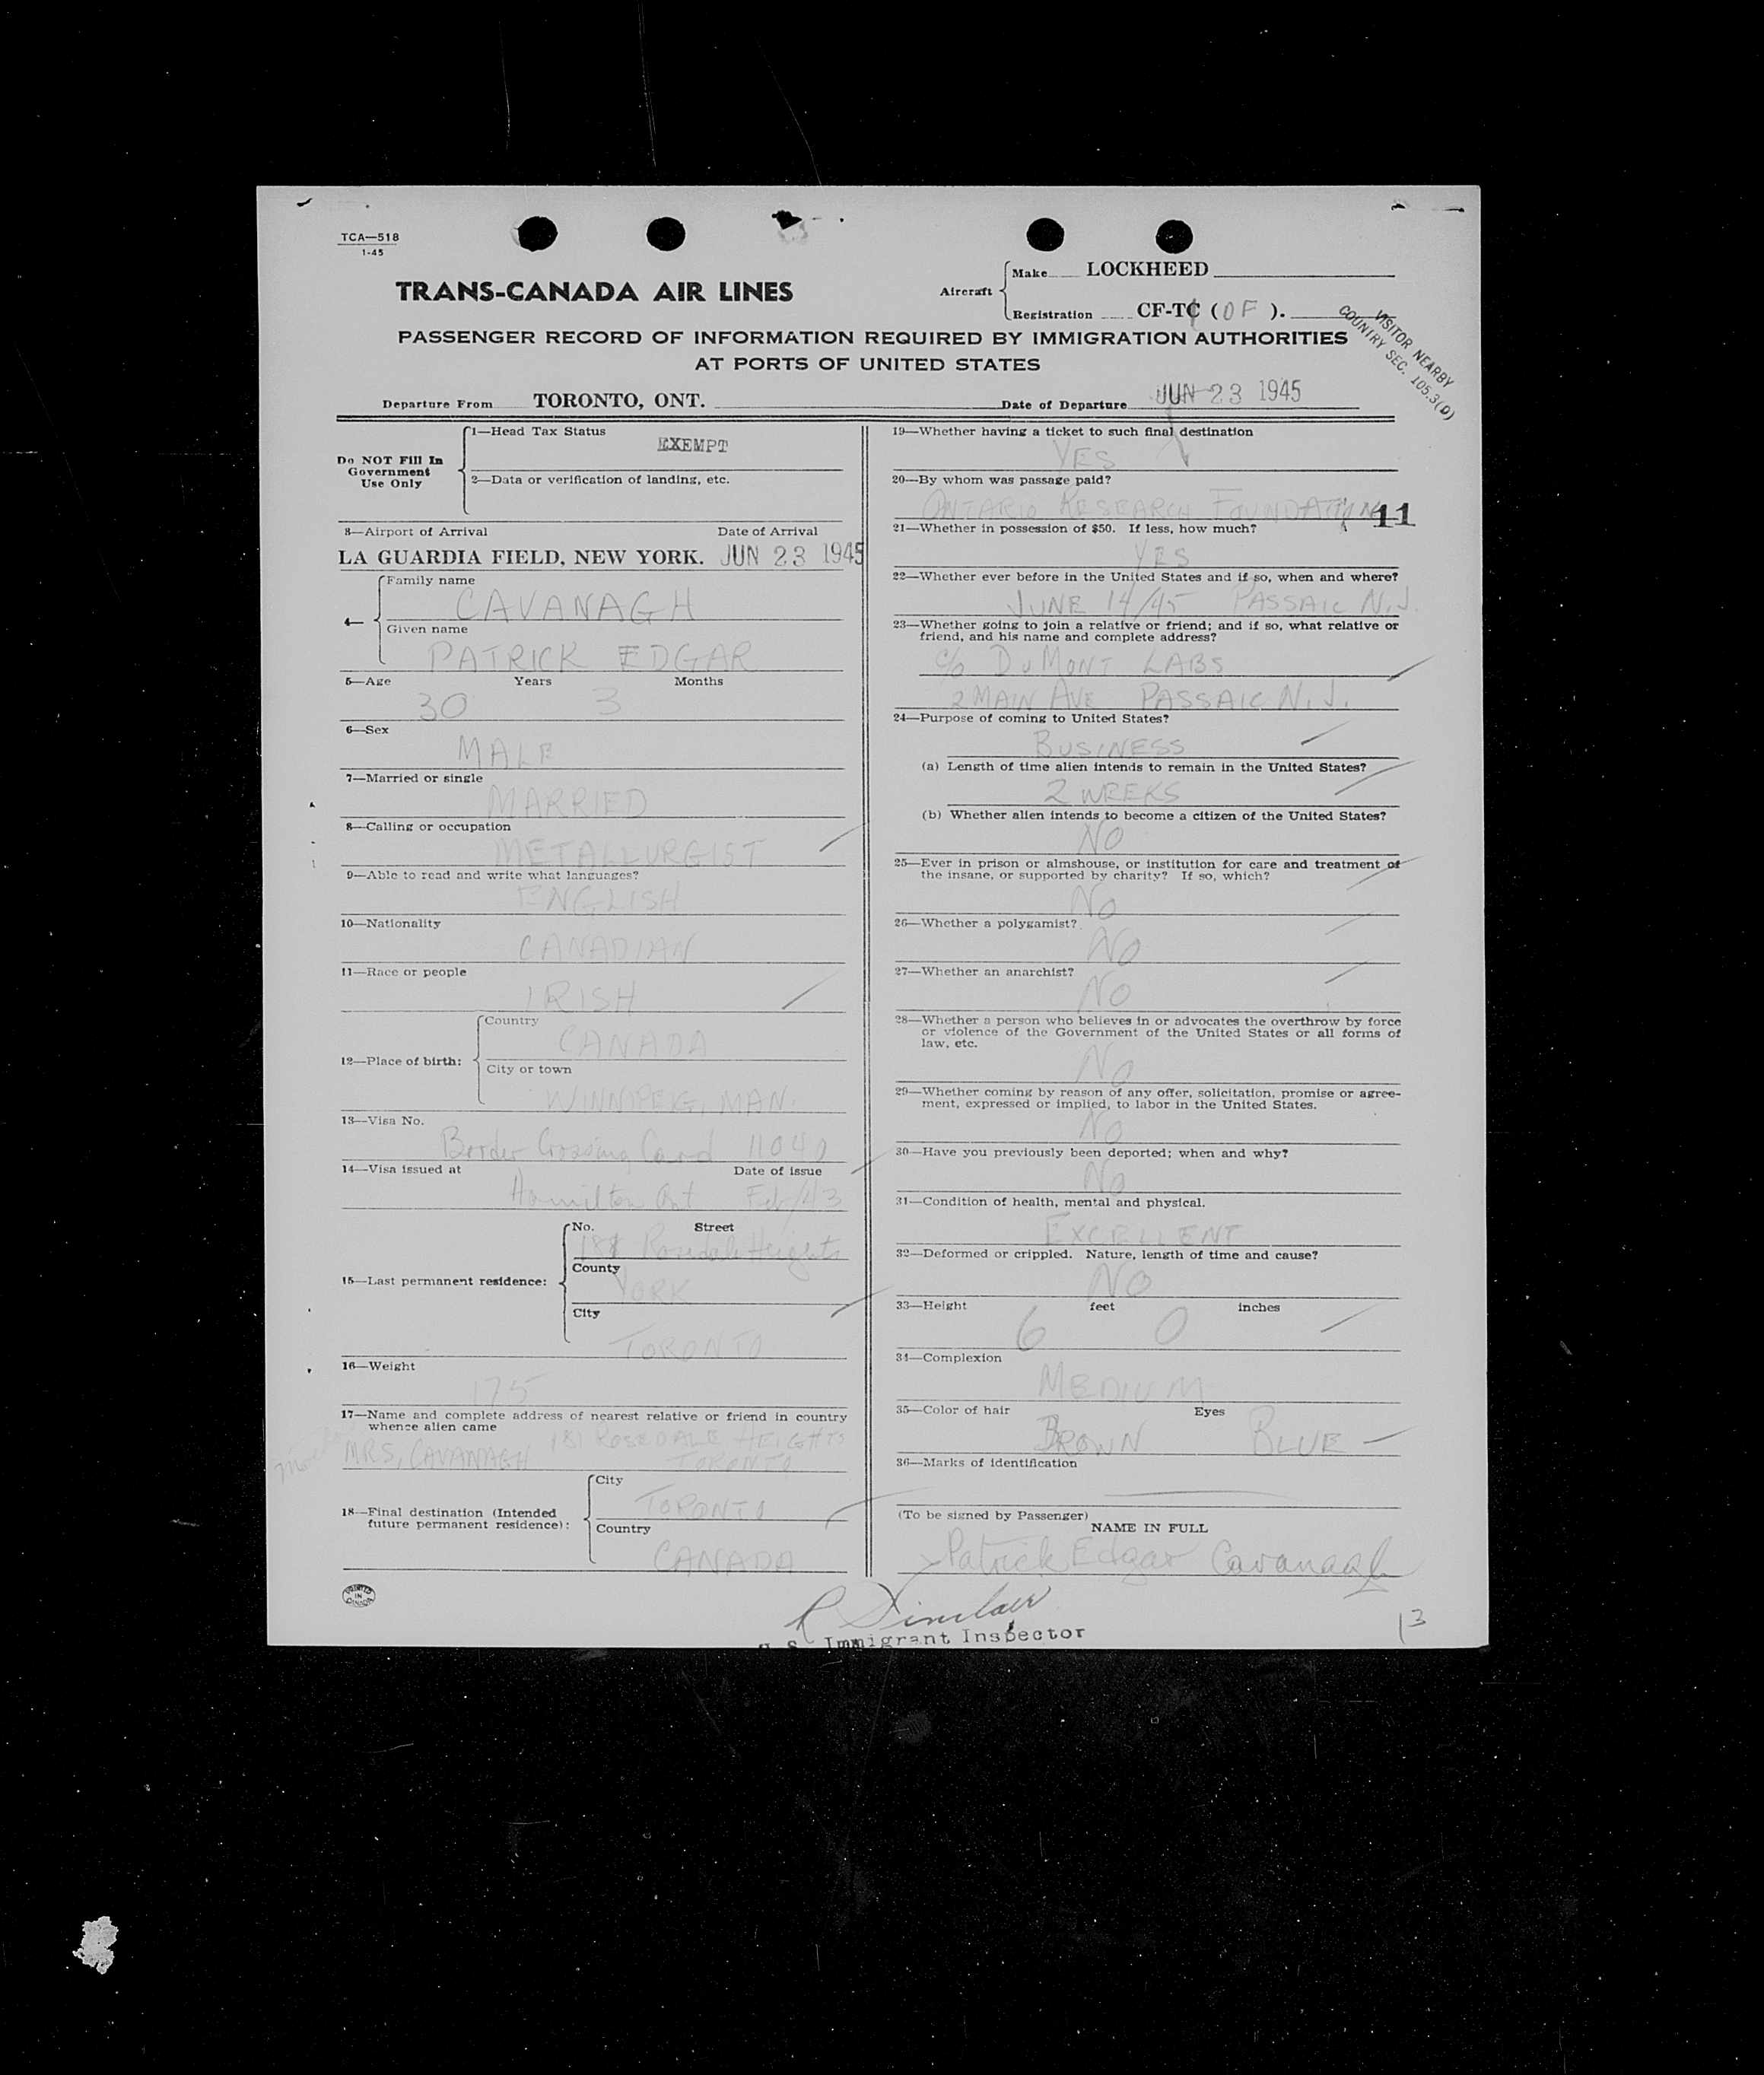 TCA—518
1-45
TRANS-CANADA AIR LINES
Aircraft
Make LOCKHEED
Registration CF-TC (OF).
PASSENGER RECORD OF INFORMATION REQUIRED BY IMMIGRATION AUTHORITIES
AT PORTS OF UNITED STATES
VISITOR NEARBY
COUNTRY SEC. 105.3(D)
Departure From TORONTO, ONT. Date of Departure JUN 23 1945
Do NOT Fill In
Government
Use Only
1—Head Tax Status
EXEMPT
2—Data or verification of landing, etc.
3—Airport of Arrival Date of Arrival
LA GUARDIA FIELD, NEW YORK. JUN 23 1945
4—
Family name
CAVANAGH
Given name
PATRICK EDGAR
5—Age Years Months
30 3
6—Sex
MALE
7—Married or single
MARRIED
8—Calling or occupation
METALLURGIST
9—Able to read and write what languages?
ENGLISH
10—Nationality
CANADIAN
11—Race or people
IRISH
12—Place of birth:
Country
CANADA
City or town
WINNIPEG, MAN.
13—Visa No.
Border Crossing Card 11040
14—Visa issued at Date of issue
Hamilton Ont Feb/43
15—Last permanent residence:
No. Street
181 Rosedale Heights
County
YORK
City
TORONTO
16—Weight
175
17—Name and complete address of nearest relative or friend in country
whence alien came
181 ROSEDALE HEIGHTS
MRS, CAVANAGH TORONTO
18—Final destination (Intended
future permanent residence):
City
TORONTO
Country
CANADA
PRINTED
IN
CANADA
19—Whether having a ticket to such final destination
YES
20—By whom was passage paid?
ONTARIO RESEARCH FOUNDATION
11
21—Whether in possession of $50. If less, how much?
YES
22—Whether ever before in the United States and if so, when and where?
JUNE 14/45 PASSAIC N.J.
23—Whether going to join a relative or friend; and if so, what relative or
friend, and his name and complete address?
c/o DuMONT LABS
2 MAIN AVE PASSAIC N.J.
24—Purpose of coming to United States?
BUSINESS
(a) Length of time alien intends to remain in the United States?
2 WEEKS
(b) Whether alien intends to become a citizen of the United States?
NO
25—Ever in prison or almshouse, or institution for care and treatment of
the insane, or supported by charity? If so, which?
NO
26—Whether a polygamist?
NO
27—Whether an anarchist?
NO
28—Whether a person who believes in or advocates the overthrow by force
or violence of the Government of the United States or all forms of
law, etc.
NO
29—Whether coming by reason of any offer, solicitation, promise or agree-
ment, expressed or implied, to labor in the United States.
NO
30—Have you previously been deported; when and why?
NO
31—Condition of health, mental and physical.
EXCELLENT
32—Deformed or crippled. Nature, length of time and cause?
NO
33—Height feet inches
6 0
34—Complexion
MEDIUM
35—Color of hair Eyes
BROWN BLUE
36—Marks of identification
(To be signed by Passenger)
NAME IN FULL
Patrick Edgar Cavanagh
R Sinclair
U. S. Immigrant Inspector
13